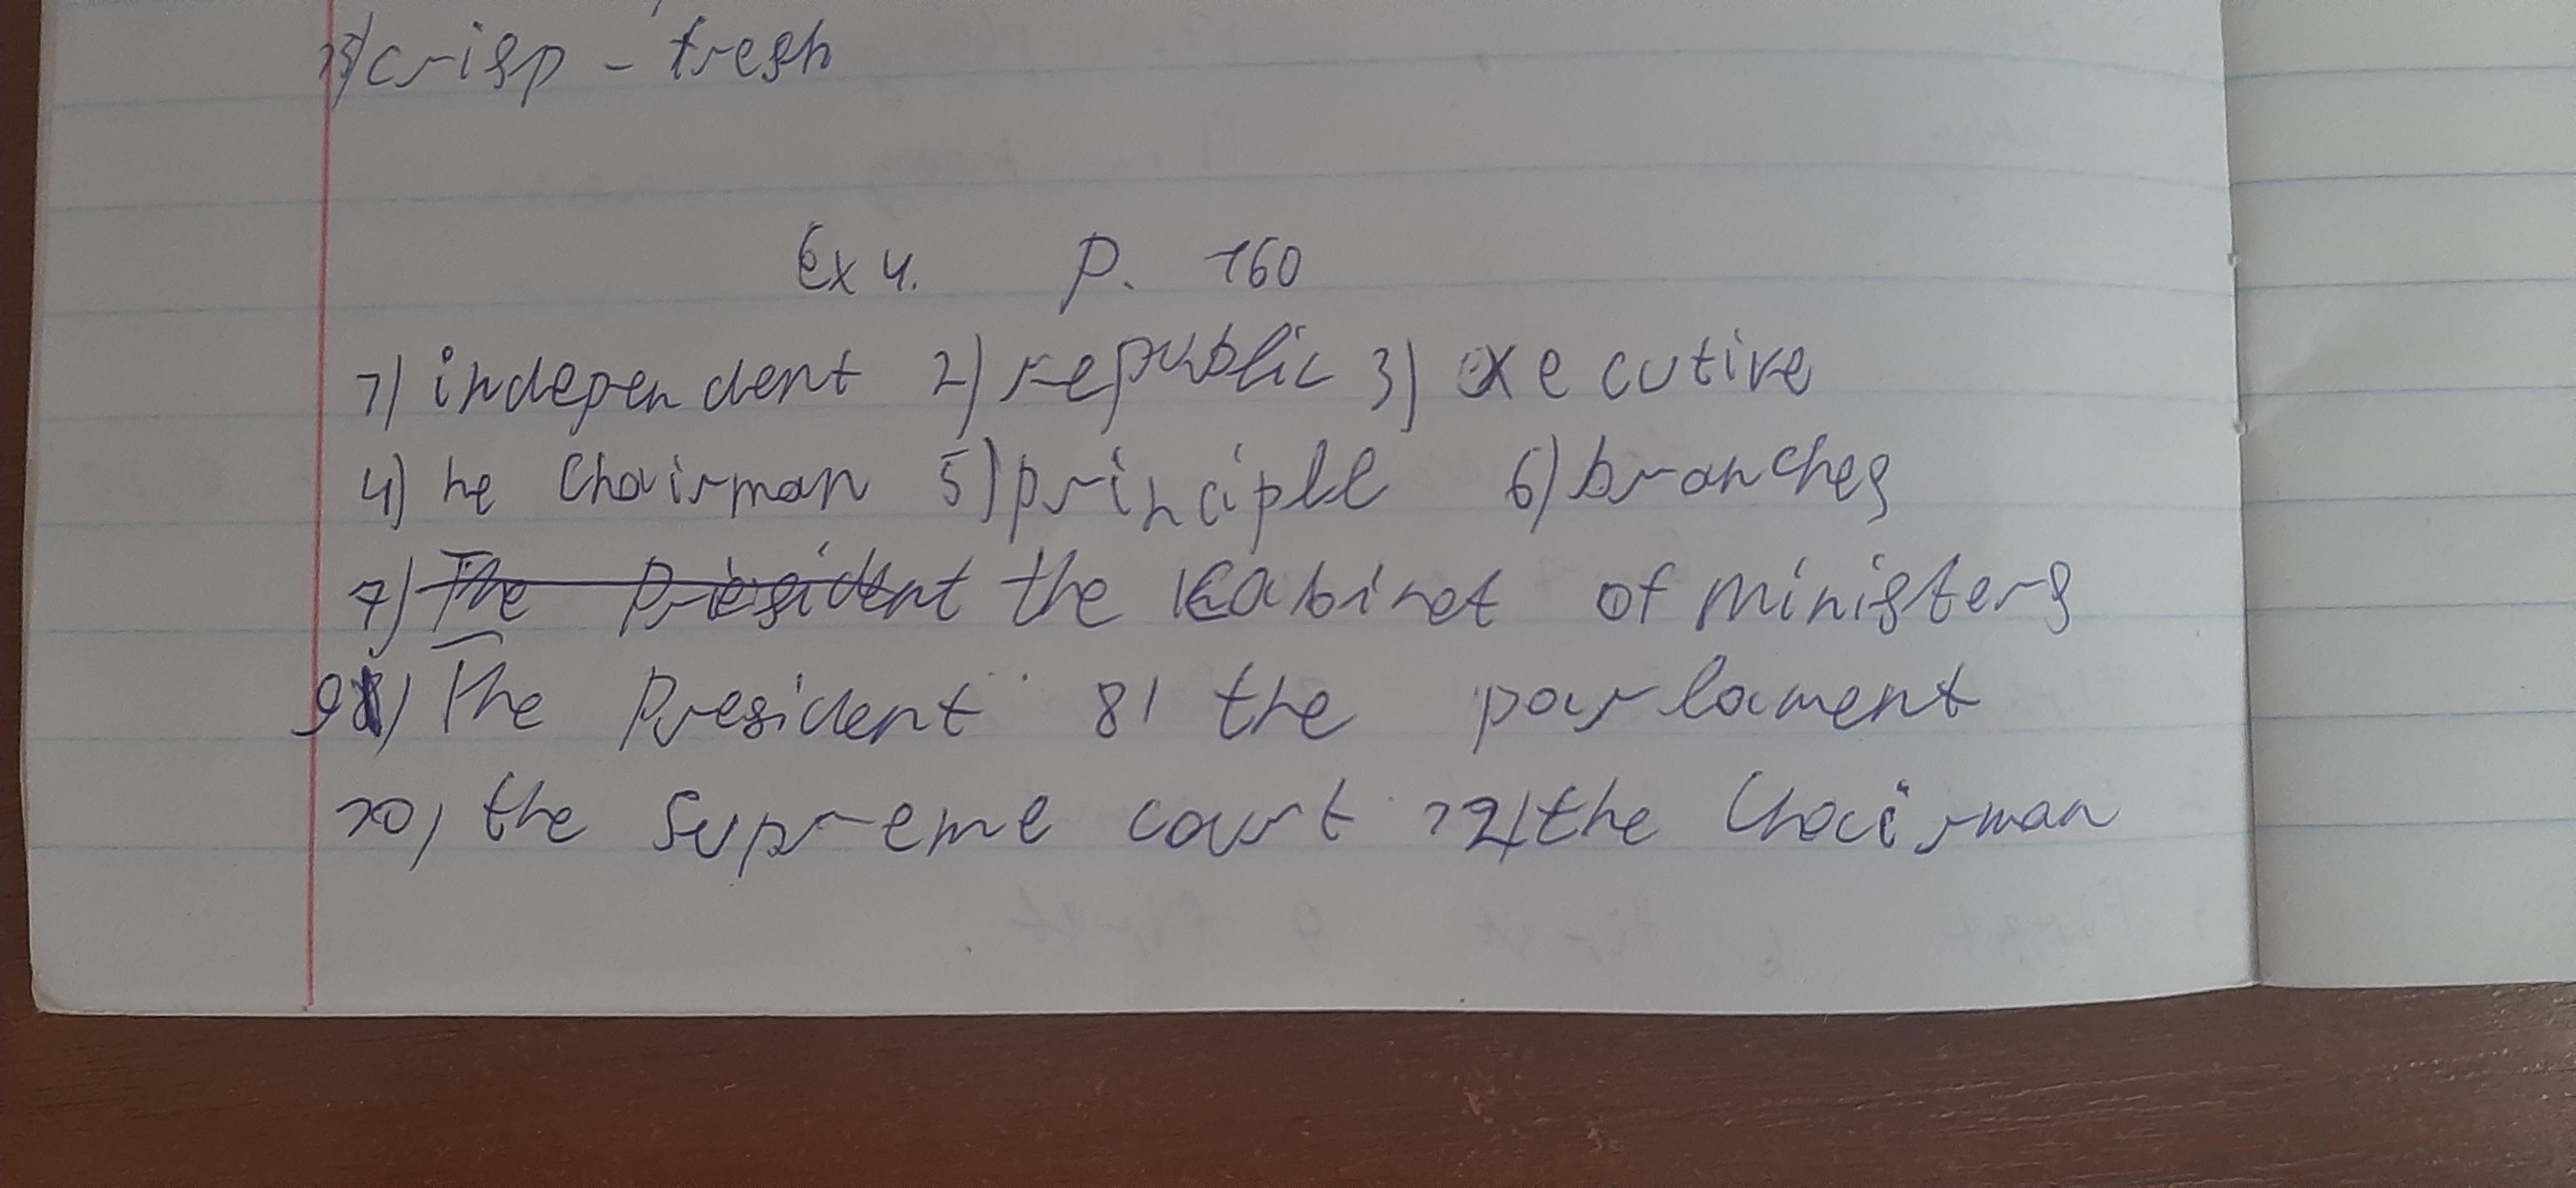 15) crisp - fresh
Ex 4. p. 160
1) independent 2) republic 3) executive
4) he Chairman 5) principle 6) branches
7) The President the Cabinet of ministers
9) The President 8) the parlament
10) the Supreme court 12) the Chairman